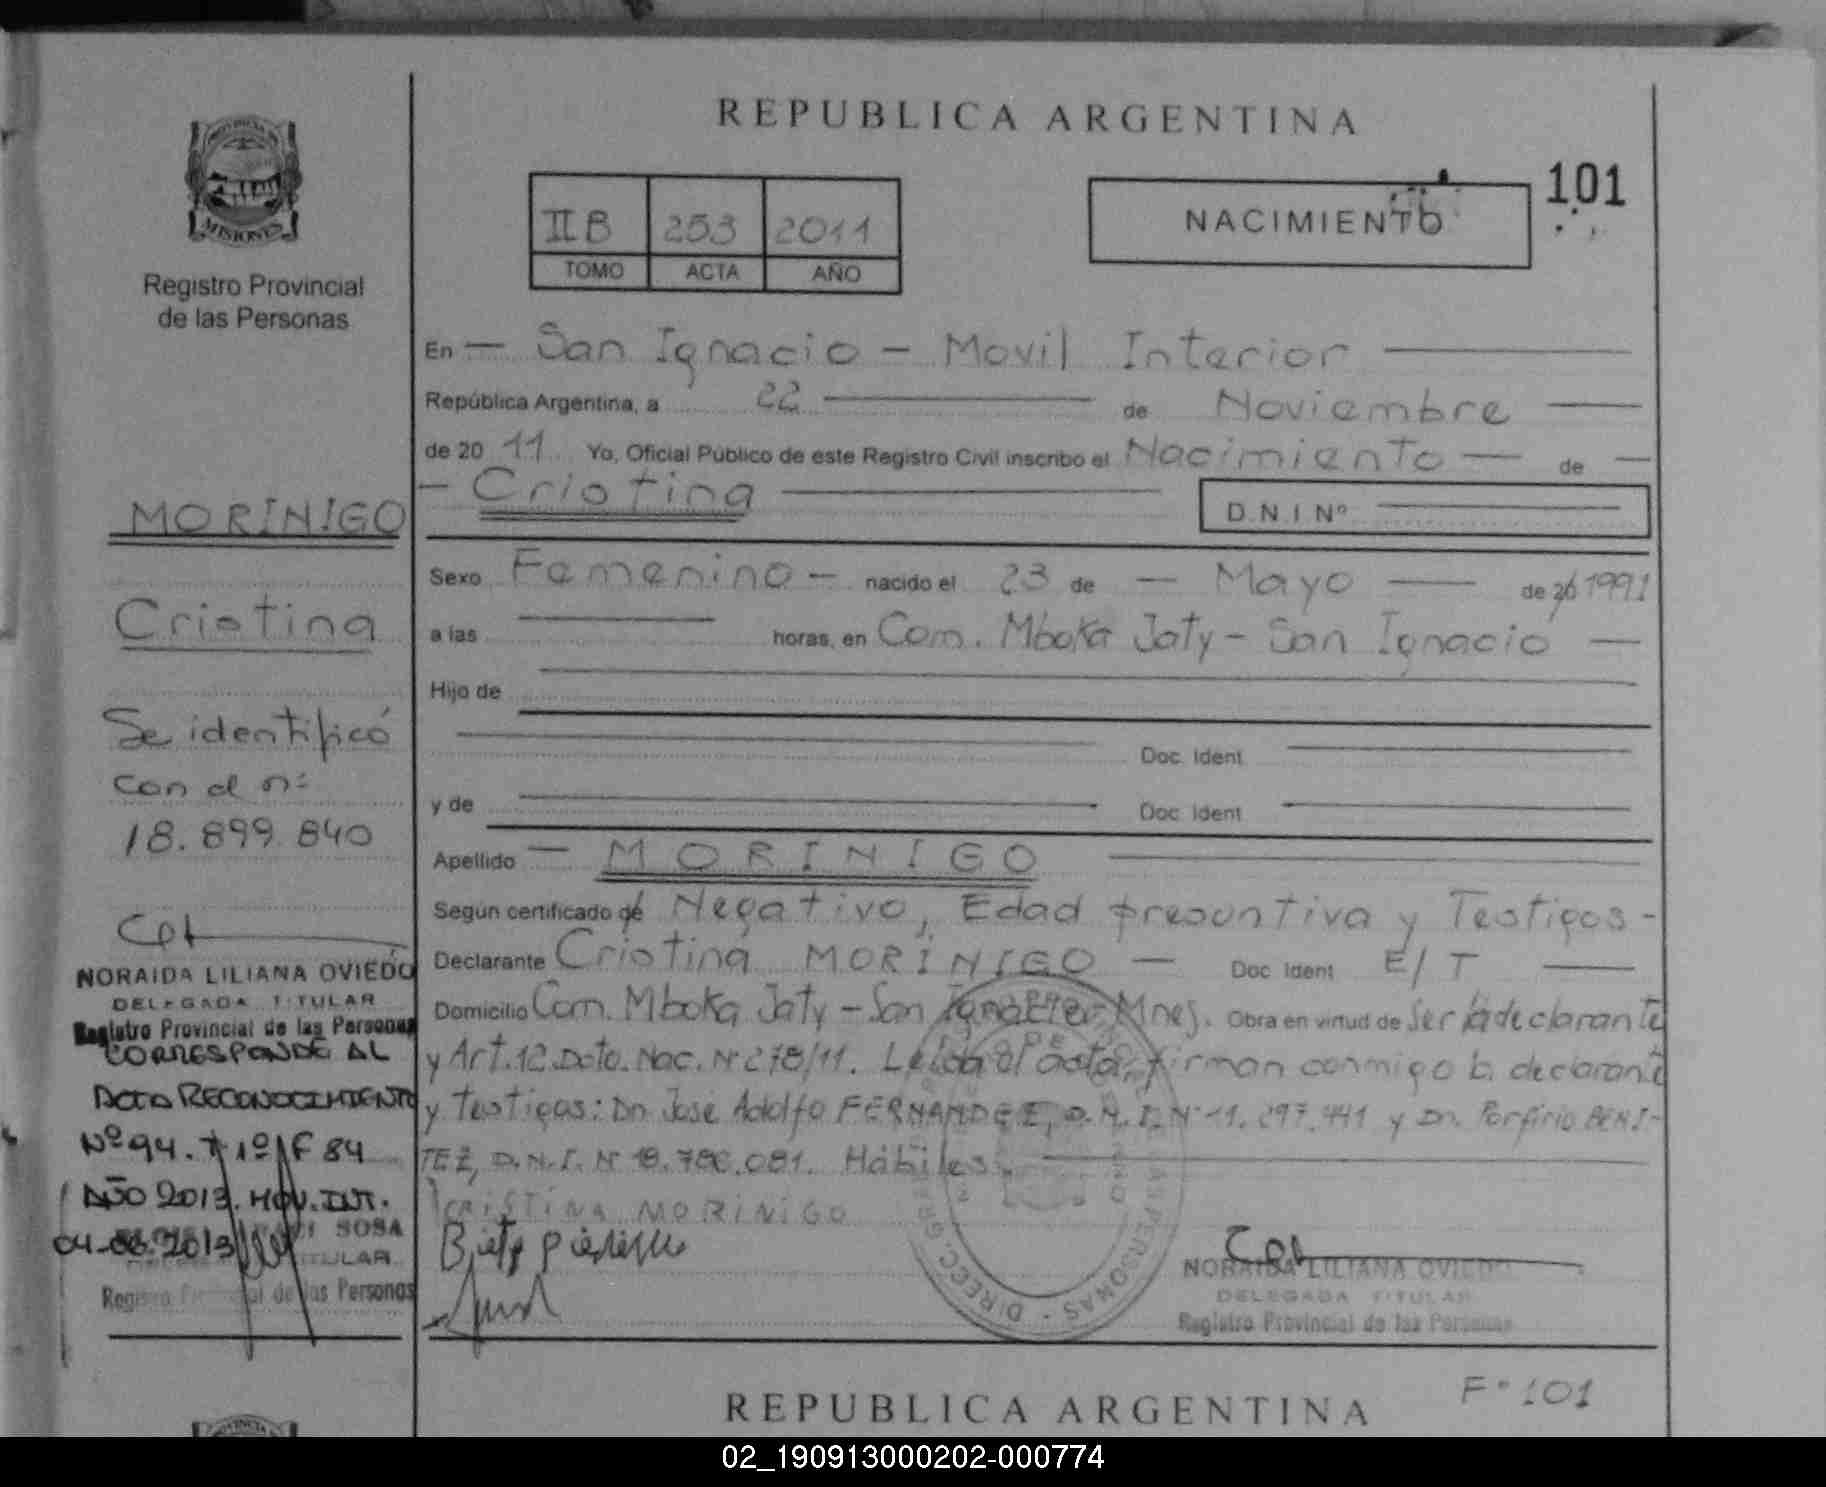 REPUBLICA ARGENTINA
PROVINCIA DE
MISIONES
Registro Provincial
de las Personas
II B 253 2011
TOMO ACTA AÑO
NACIMIENTO
101
En — San Ignacio - Movil Interior —
República Argentina, a 22 — de Noviembre —
de 20 11 Yo, Oficial Público de este Registro Civil inscribo el Nacimiento — de —
— Cristina —
D.N.I Nº —
Sexo Femenino — nacido el 23 de — Mayo — de 1991
a las — horas, en Com. Mboka Jaty - San Ignacio —
Hijo de —
— Doc. Ident —
y de — Doc. Ident —
Apellido — MORINIGO —
Según certificado de Negativo, Edad presuntiva y Testigos -
Declarante Cristina MORINIGO — Doc Ident E/T —
Domicilio Com. Mboka Jaty - San Ignacio - Mnes. Obra en virtud de Ser la declarante
y Art. 12 Dcto. Nac. Nº 278/11. Leida el acta, firman conmigo la declarante
y testigos: Dn José Adolfo FERNANDEZ, D.N.I. Nº 11.297.441 y Dn. Porfirio BENI-
TEZ, D.N.I. Nº 18.786.081. Hábiles. —
CRISTINA MORINIGO
NORAIDA LILIANA OVIEDO
DELEGADA TITULAR
Registro Provincial de las Personas
MORINIGO
Cristina
Se identificó
con el nº
18.899.840
NORAIDA LILIANA OVIEDO
DELEGADA TITULAR
Registro Provincial de las Personas
CORRESPONDE AL
ACTA RECONOCIMIENTO
Nº 94. T 1º F 84
AÑO 2013. MOV. INT.
04-06-2013 SOSA
TITULAR
Registro de las Personas
F° 101
REPUBLICA ARGENTINA
02_190913000202-000774